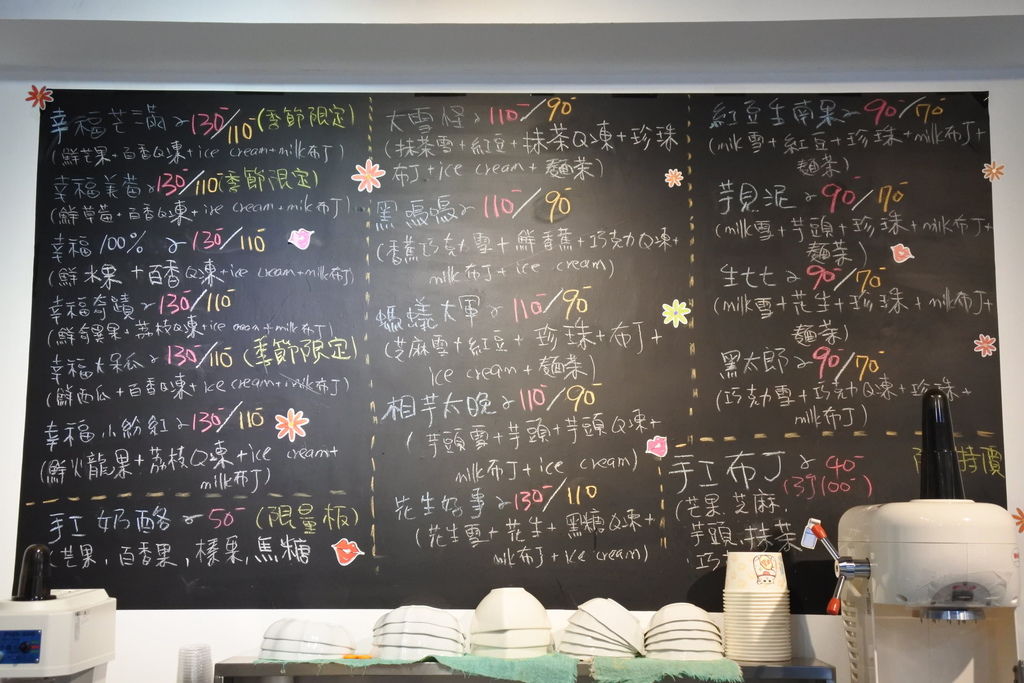 幸福芒滿~130/110(季節限定)
(鮮芒果+百香Q凍+ice cream+milk布丁)
幸福美莓~130/110(季節限定)
(鮮草莓+百香Q凍+ice cream+milk布丁)
幸福100%~130/110
(鮮水果+百香Q凍+ice cream+milk布丁)
幸福奇蹟~130/110
(鮮奇異果+荔枝Q凍+ice cream+milk布丁)
幸福大呆瓜~130/110(季節限定)
(鮮西瓜+百香Q凍+ice cream+milk布丁)
幸福小粉紅~130/110
(鮮火龍果+荔枝Q凍+ice cream+
milk布丁)
手工奶酪~50(限量板)
芒果,百香果,榛果,焦糖
大雪怪~110/90
(抹茶雪+紅豆+抹茶Q凍+珍珠
布丁+ice cream+麵茶)
黑嗚嗚~110/90
(香蕉巧克力雪+鮮香蕉+巧克力Q凍+
milk布丁+ice cream)
螞蟻大軍~110/90
(芝麻雪+紅豆+珍珠+布丁+
ice cream+麵茶)
相芋太晚~110/90
(芋頭雪+芋頭+芋頭Q凍+
milk布丁+ice cream)
花生好事~130/110
(花生雪+花生+黑糖Q凍+
milk布丁+ice cream)
紅豆生南果~90/70
(milk雪+紅豆+珍珠+milk布丁+
麵茶)
芋見泥~90/70
(milk雪+芋頭+珍珠+milk布丁+
麵茶)
生七七~90/70
(milk雪+花生+珍珠+milk布丁+
麵茶)
黑太郎~90/70
(巧克力雪+巧克力Q凍+珍珠+
milk布丁)
手工布丁~40 特價
(3才100)
(芒果.芝麻.
芋頭.抹茶
巧